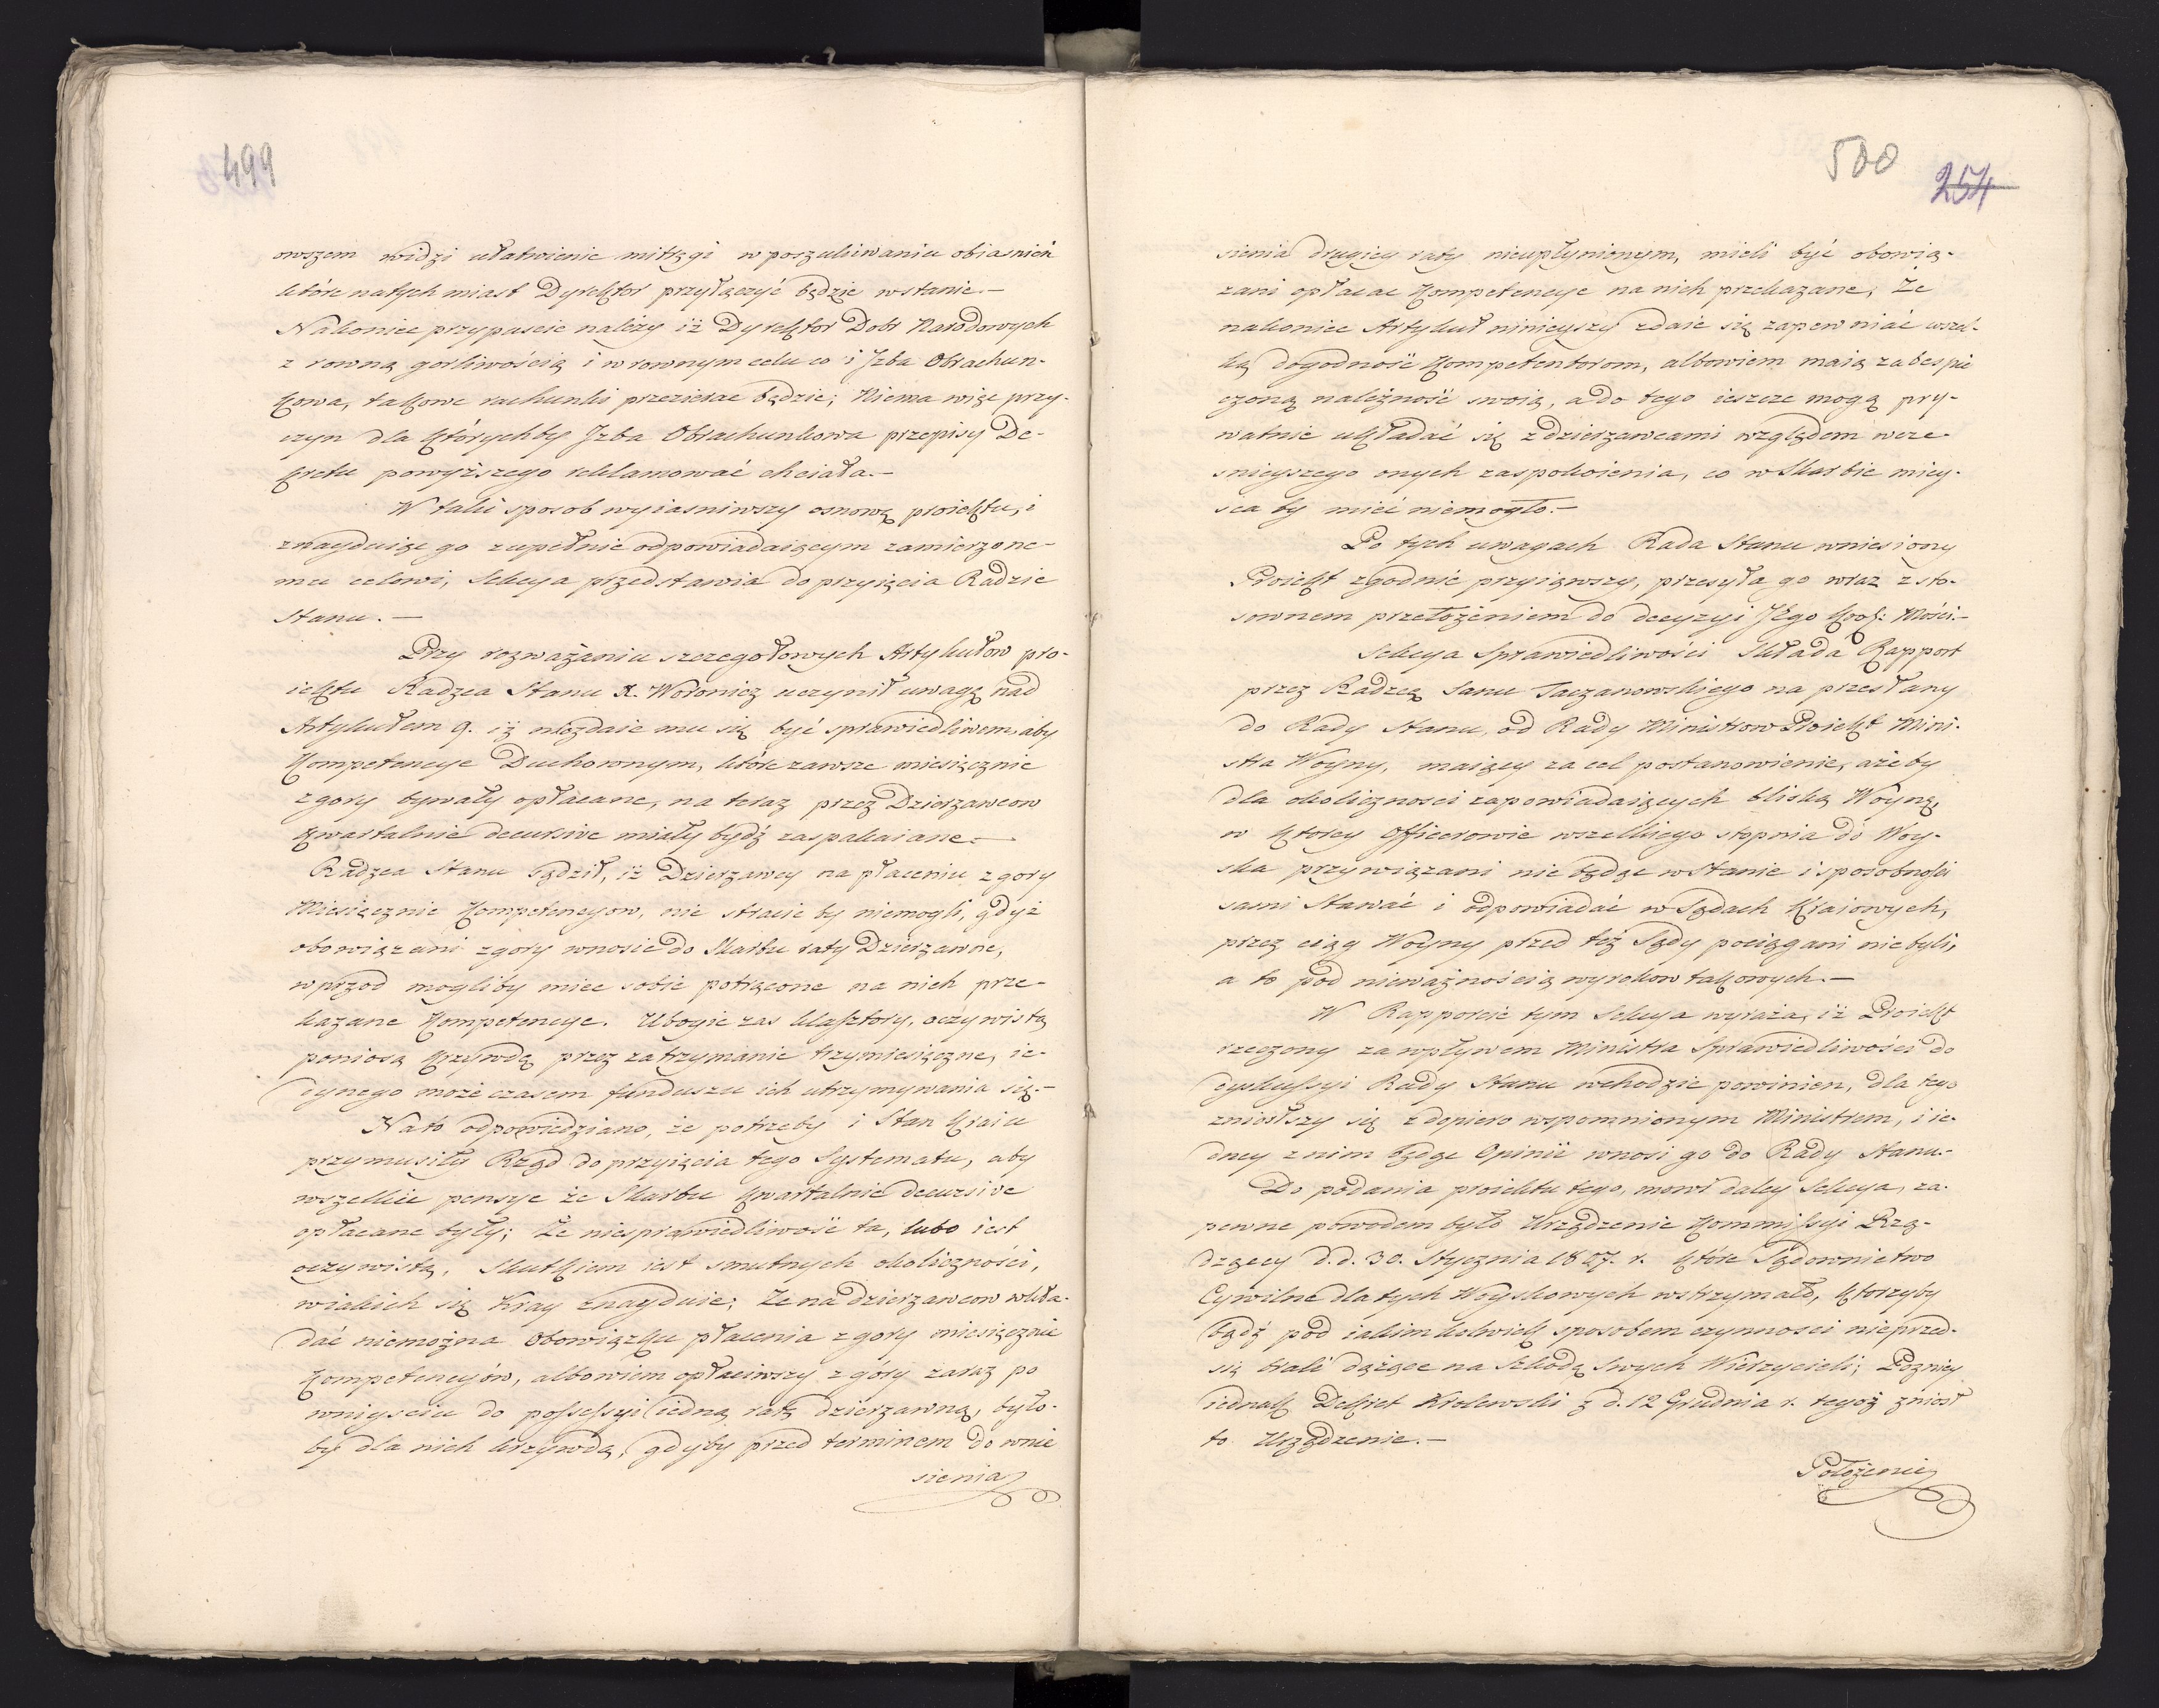 499
owszem widzi ułatwienie mitręgi w poszukiwaniu obiasnień
które natychmiast Dyrektor przyłączyć będzie wstanie.—
Nakoniec przypuscic należy iż Dyrektor Dobr Narodowych
z rowną gorliwością i w rownym celu co i Jzba Obrachun-
kowa, takowe rachunki przezierac będzie; Niema więc przy-
czyn dla którychby Jzba Obrachunkowa przepisy De-
kretu powyższego reklamować chciała.—
W taki sposob wyiasniwszy osnowę proiektu, i
znayduiąc go zupełnie odpowiadaiącym zamierzone-
mu celowi, Sekcya przedstawia do przyięcia Radzie
Stanu.—
Przy rozważaniu szczegołowych Artykułow pro-
iektu Radzca Stanu X. Woronicz uczynił uwagę nad
Artykułem 9. iż niezdaie mu się być sprawiedliwem, aby
Kompetencye Duchownym, które zawsze miesięcznie
z gory bywały opłacane, na teraz przez Dzierzawcow
kwartalnie decursive miały bydź zaspakaiane.—
Radzca Stanu sądził, iż Dzierzawcy na płaceniu z gory
Miesięcznie Kompetencyow, nie stracic by niemogli, gdyż
obowiązani z gory wnosic do Skarbu raty Dzierzawne,
wprzod mogliby miec sobie potrącone na nich prze-
kazane Kompetencye. Ubogie zas klasztory, oczywistą
poniosą krzywdę przez zatrzymanie trzymiesięczne, ie-
dynego może czasem funduszu ich utrzymywania się.—
Nato odpowiedziano, że potrzeby i Stan Kraiu
przymusiły Rząd do przyięcia tego Systematu, aby
wszelkie pensye ze Skarbu kwartalnie decursive
opłacane były; Że niesprawiedliwość ta, lubo iest
oczywistą, skutkiem iest smutnych okoliczności,
wiakich się Kray znayduie; Że na dzierzawcow wkła-
dać niemożna Obowiązku płacenia z gory miesięcznie
Kompetencyów, albowiem opłaciwszy z góry zaraz po
wniysciu do possessyi iedną ratę dzierzawną, było-
by dla nich krzywdą, gdyby przed terminem do wnie
sienia
500
254
sienia drugiey raty nieupłynionym, mieli być obowią-
zani opłacac Kompetencye na nich przekazane; Że
nakoniec Artykuł ninieyszy zdaie się zapewniać wszel-
ką dogodność Kompetentorom, albowiem maią zabespie
czoną należność swoią, a do tego ieszcze mogą pry-
watnie układać się z dzierzawcami względem wcze-
snieyszego onych zaspokoienia, co w Skarbie miey-
sca by mieć niemogło.—
Po tych uwagach Rada Stanu wniesiony
Proiekt zgodnie przyiąwszy, przesyła go wraz z sto-
sownem przełożeniem do decyzyi JEgo Krol: Mości.—
Sekcya Sprawiedliwości Składa Rapport
przez Radzcę Sanu Taczanowskiego na przesłany
do Rady Stanu, od Rady Ministrow Proiekt Mini-
stra Woyny, maiący za cel postanowienie, ażeby
dla okolicznosci zapowiadaiących bliską Woynę,
w ktorey Officerowie wszelkiego stopnia do Woy-
ska przywiązani nie będąc w Stanie i sposobności
sami Stawać i odpowiadać w Sądach Kraiowych,
przez ciąg Woyny przed też Sądy pociągani nie byli,
a to pod nieważnością wyrokow takowych.—
W Rapporcie tym Sekcya wyraża, iż Proiekt
rzeczony za wpływem Ministra Sprawiedliwości do
dyskussyi Rady Stanu wchodzic powinien, dla tego
zniosłszy się z dopiero wspomnionym Ministrem, i ie-
dney z nim będąc Opinii wnosi go do Rady Stanu.-
Do podania proiektu tego, mowi daley Sekcya, za-
pewne powodem było Urządzenie Kommissyi Rzą-
dzącey d. d. 30. Stycznia 1807. r. które Sądownictwo
Cywilne dla tych Woyskowych wstrzymało, ktorzyby
bądź pod iakimkolwiek sposobem czynnosci nieprzed-
się brali dążące na szkodę swych Wierzycieli; Pozniey
iednak Dekret Krolewski z d. 12 Grudnia r. tegoż zniosł
to Urządzenie.—
Położenie